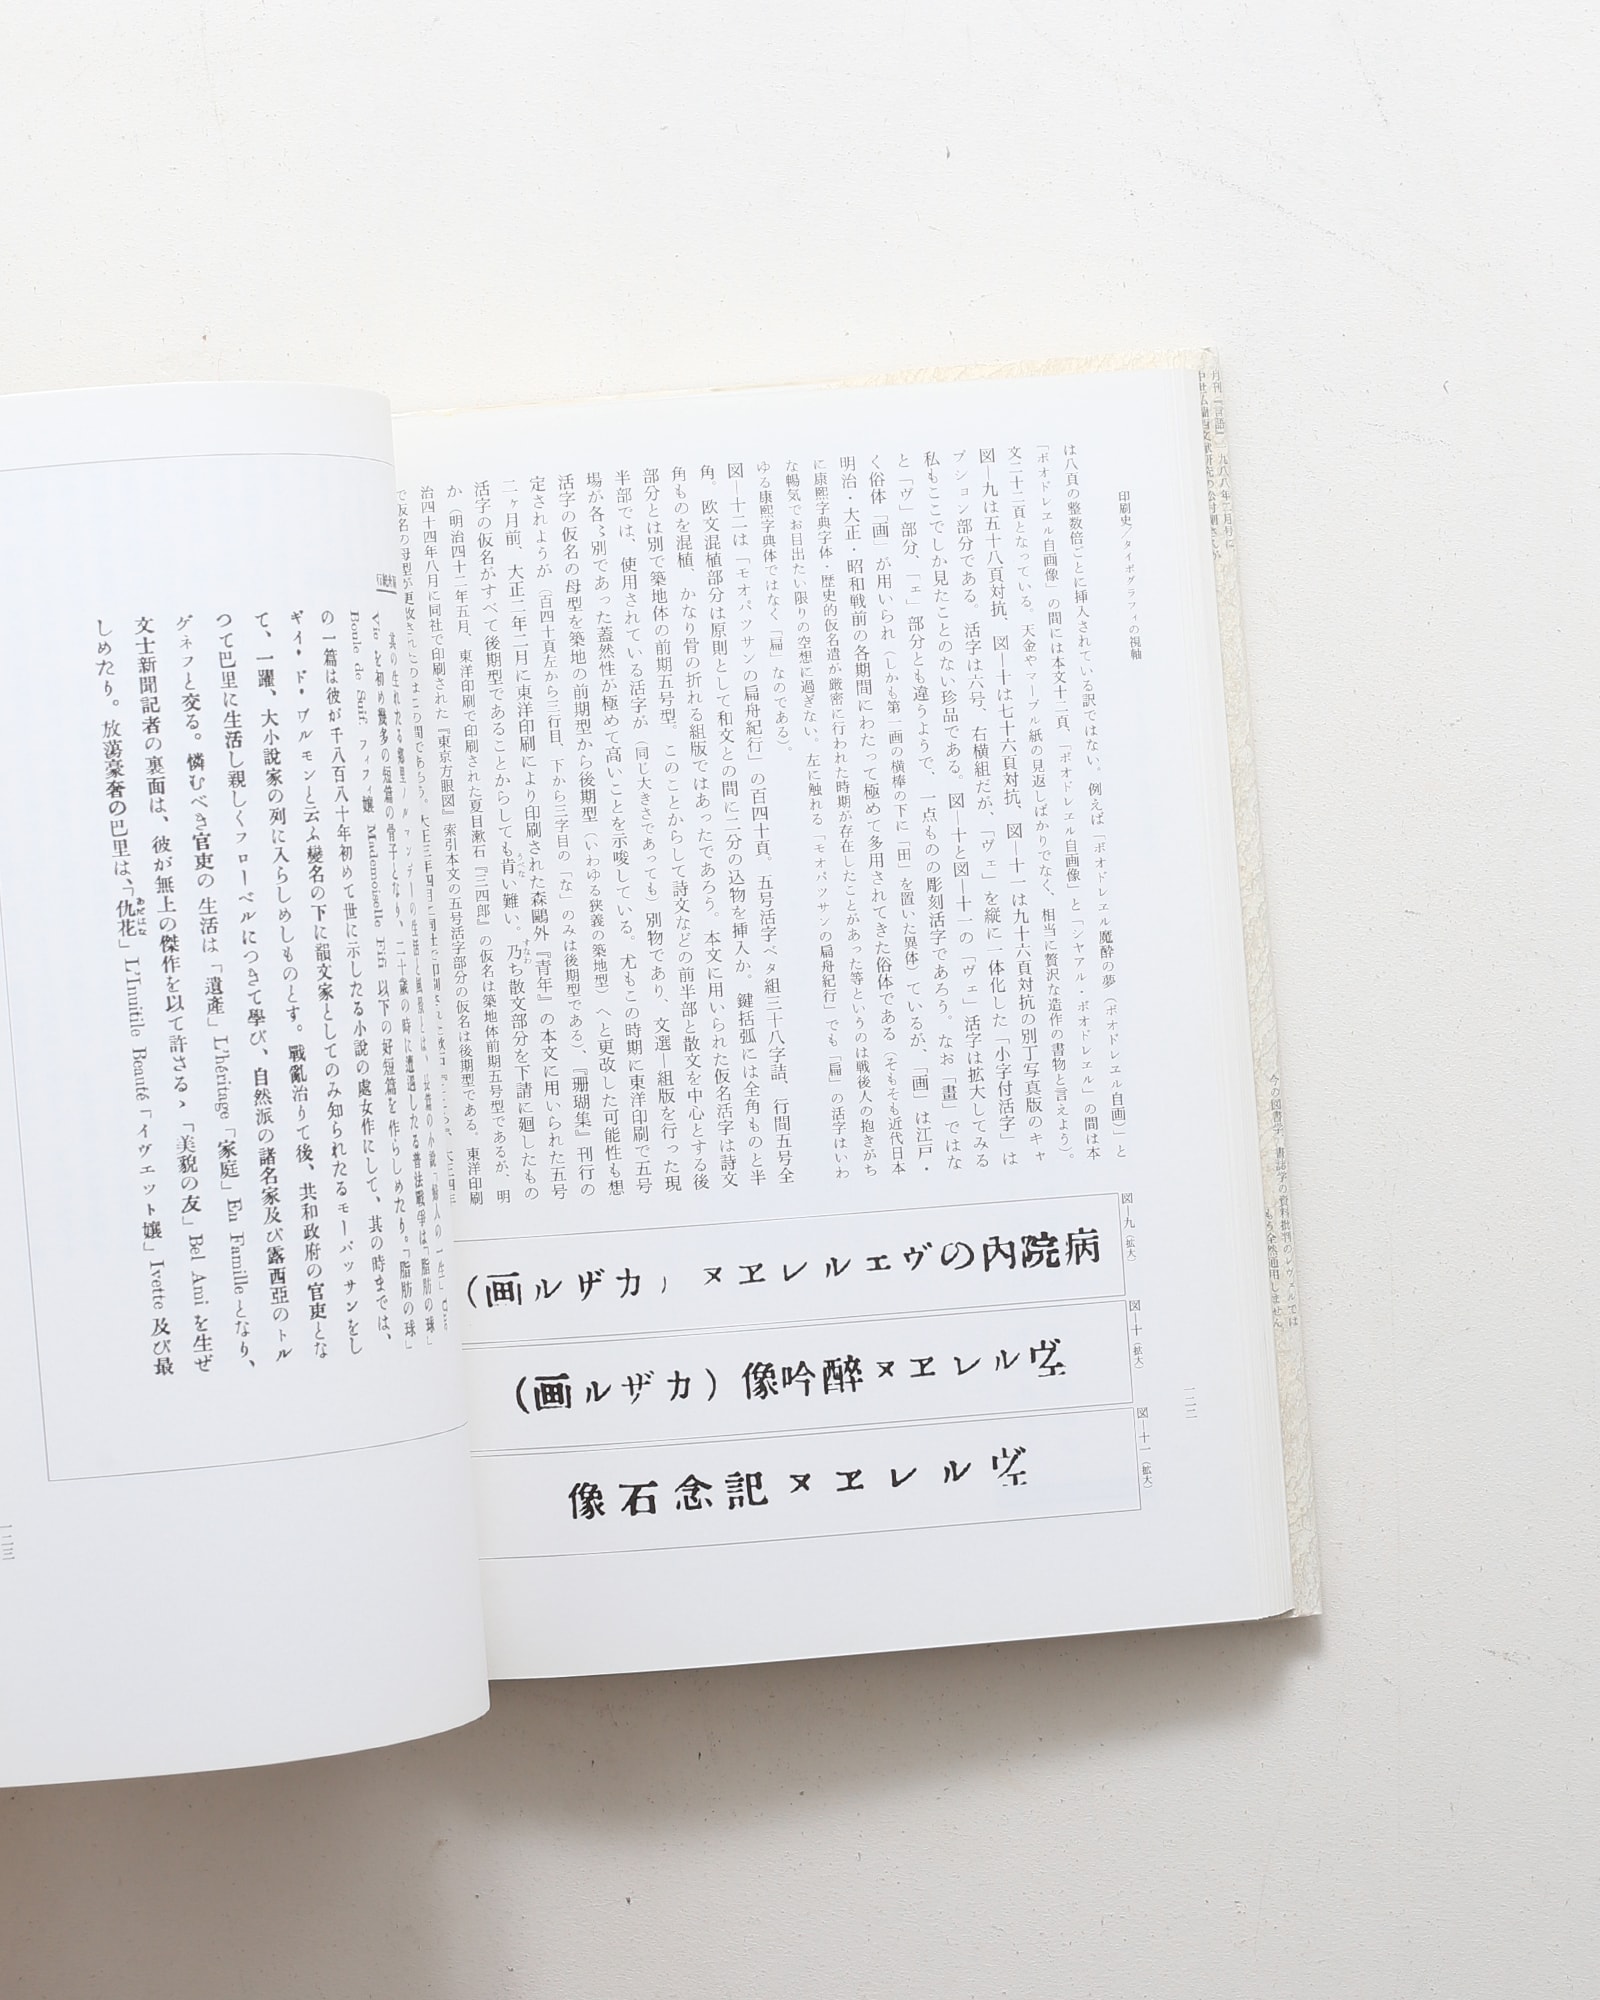 印刷史/タイポグラフィの視軸
は八頁の整数倍ごとに挿入されている訳ではない。例えば「ボオドレヱル魔酔の夢(ボオドレヱル自画)」と
「ボオドレヱル自画像」の間には本文十二頁、「ボオドレヱル自画像」と「シヤアル・ボオドレヱル」の間は本
文二十二頁となっている。天金やマーブル紙の見返しばかりでなく、相当に贅沢な造作の書物と言えよう。
図—九は五十八頁対抗、図—十は七十六頁対抗、図—十一は九十六頁対抗の別丁写真版のキャ
プション部分である。活字は六号、右横組だが、「ヴェ」を縦に一体化した「小字付活字」は
私もここでしか見たことのない珍品である。図—十と図—十一の「ヴェ」活字は拡大してみる
と「ヴ」部分、「ェ」部分とも違うようで、一点ものの彫刻活字であろう。なお「畫」ではな
く俗体「画」が用いられ(しかも第一画の横棒の下に「田」を置いた異体)ているが、「画」は江戸・
明治・大正・昭和戦前の各期間にわたって極めて多用されてきた俗体である(そもそも近代日本
に康熙字典字体・歴史的仮名遣が厳密に行われた時期が存在したことがあった等というのは戦後人の抱きがち
な暢気でお目出たい限りの空想に過ぎない。左に触れる「モオパツサンの扁舟紀行」でも「扁」の活字はいわ
ゆる康熙字典体ではなく「扁」なのである)。
図—十二は「モオパツサンの扁舟紀行」の百四十頁。五号活字ベタ組三十八字詰、行間五号全
角。欧文混植部分は原則として和文との間に二分の込物を挿入か。鍵括弧には全角ものと半
角ものを混植、かなり骨の折れる組版ではあったであろう。本文に用いられた仮名活字は詩文
部分とは別で築地体の前期五号型。このことからして詩文などの前半部と散文を中心とする後
半部では、使用されている活字が(同じ大きさであっても)別物であり、文選—組版を行った現
場が各〻別であった蓋然性が極めて高いことを示唆している。尤もこの時期に東洋印刷で五号
活字の仮名の母型を築地の前期型から後期型(いわゆる狭義の築地型)へと更改した可能性も想
定されようが(百四十頁左から三行目、下から三字目の「な」のみは後期型である)、『珊瑚集』刊行の
二ヶ月前、大正二年二月に東洋印刷により印刷された森鷗外『青年』の本文に用いられた五号
活字の仮名がすべて後期型であることからしても肯い難い。乃ち散文部分を下請に廻したもの
か(明治四十二年五月、東洋印刷で印刷された夏目漱石『三四郎』の仮名は築地体前期五号型であるが、明
治四十四年八月に同社で印刷された『東京方眼図』索引本文の五号活字部分の仮名は後期型である。東洋印刷
で仮名の母型が更改されたのはこの間であろう。大正三年四月に同社で印刷された
図—九(拡大)
病院內のヴエルレヱヌ(カザル画)
図—十(拡大)
ヴェルレヱヌ醉吟像(カザル画)
図—十一(拡大)
ヴェルレヱヌ記念石像
一二二
今の図書学、書誌学の資料批判のレヴェルでは
もう全然通用しません
其の生れたる鄕里ノルマンデーの生活と風景とは、長篇の小說「婦人の一生」
Vie を初め幾多の短篇の骨子となり、二十歲の時に遭遇したる普法戰爭は「脂肪の球」
Boule de Suif. フィフィ孃 Mademoiselle Fifi 以下の好短篇を作らしめたり。「脂肪の球」
の一篇は彼が千八百八十年初めて世に示したる小說の處女作にして、其の時までは、
ギイ・ド・ヷルモンと云ふ變名の下に韻文家としてのみ知られたるモーパッサンをし
て、一躍、大小說家の列に入らしめしものとす。戰亂治りて後、共和政府の官吏とな
つて巴里に生活し親しくフローベルにつきて學び、自然派の諸名家及び露西亞のトル
ゲネフと交る。憐むべき官吏の生活は「遺產」L'héritage「家庭」En Familleとなり、
文士新聞記者の裏面は、彼が無上の傑作を以て許さるゝ「美貌の友」Bel Ami を生ぜ
しめたり。放蕩豪奢の巴里は、「仇花」L'Inutile Beauté「イヴェット孃」Ivette 及び最
一二三